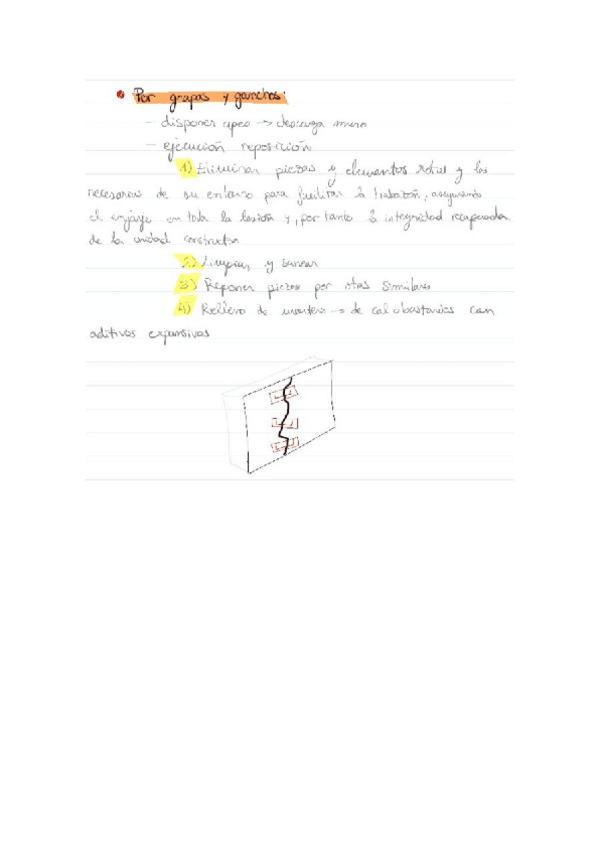 Por grapas y ganchos:
- disponer apeo → descarga muro
- ejecución reposición
1) Eliminar piezas y elementos rotos y los
necesarios de su entorno para facilitar la trabazón, asegurando
el enjarje en toda la lesión y, por tanto la integridad recuperada
de la unidad constructiva
2) Limpiar y sanear
3) Reponer piezas por otras similares
4) Relleno de mortero → de cal o bastardos con
aditivos expansivos